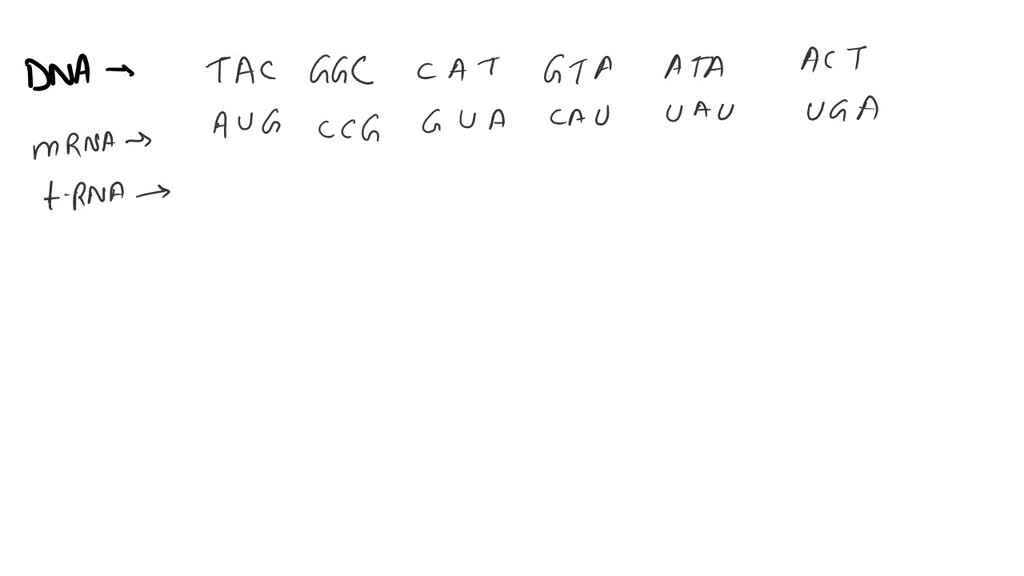 DNA → TAC GGC CAT GTA ATA ACT
mRNA → AUG CCG GUA CAU UAU UGA
t-RNA →